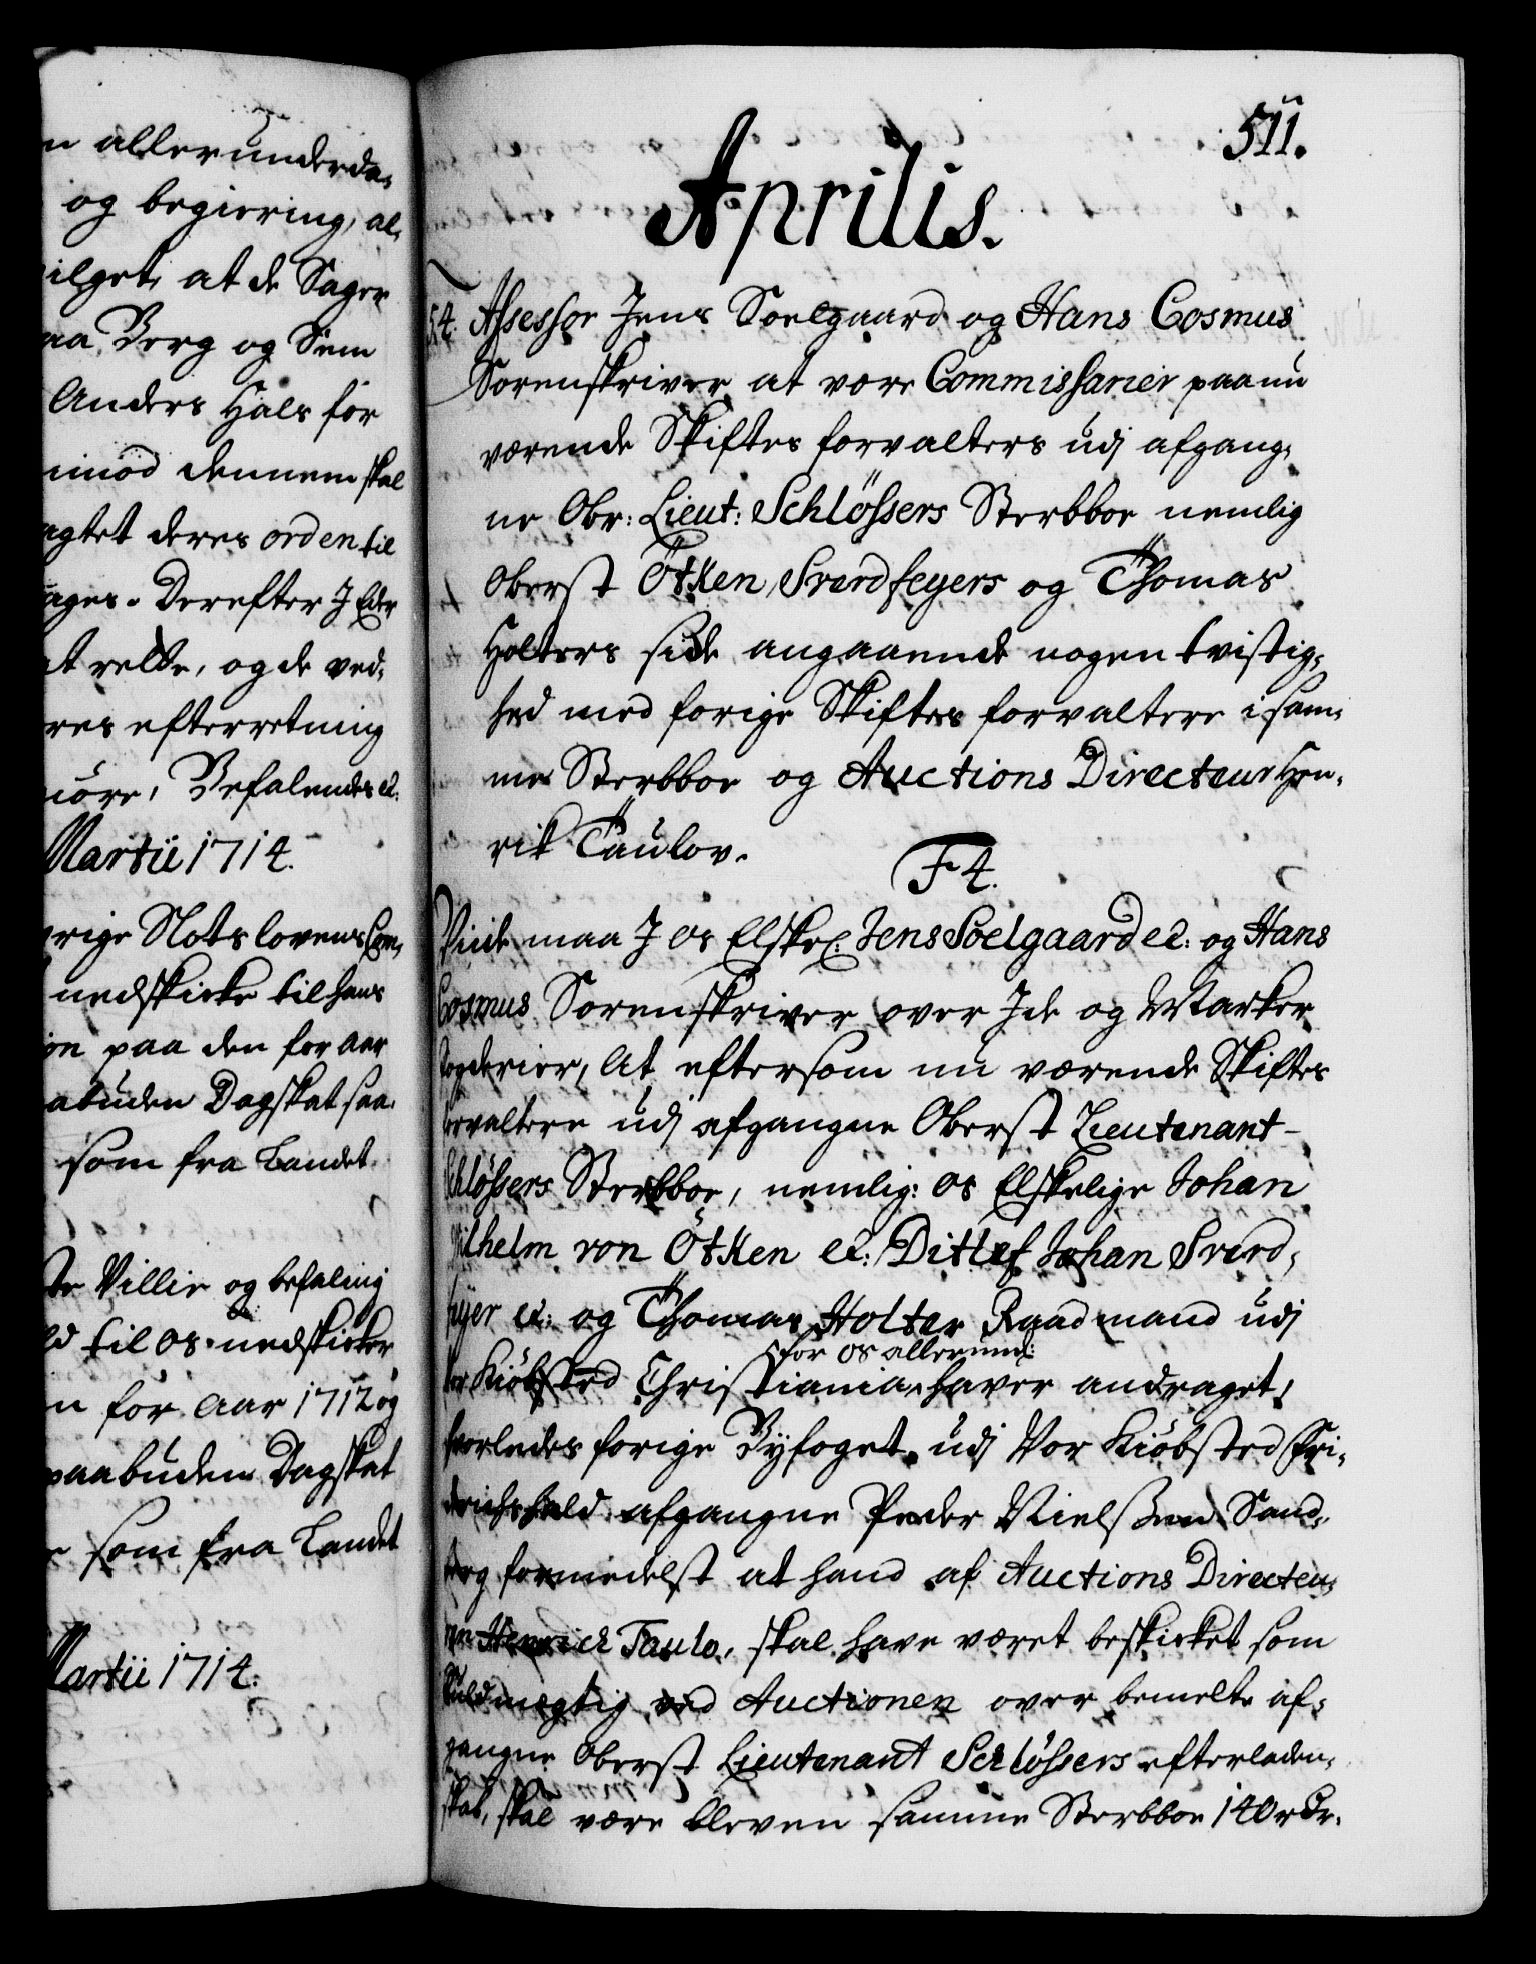 n allerunderda,
og begiering, al,
ilget, at de Sager
aa Berg og Sem
Anders Hals for
imod dennem skal
agtet deres orden til
ages. Derefter J Eder
at rette, og de ved,
res efterretning
iöre, Befalendes etc:
Martii 1714.
rige Slots lovens Com,
nedskicke til hans
on paa den for aar
abuden Dagskat saa,
som fra Landet
te Villie og befaling
ld til os nedskicker
n for aar 1712 og
paabuden Dagskat
som fra Landet
Martii 1714.
511.
Aprilis.
54. Assessor Jens Soelgaard og Hans Cosmus
Sorenskriver at være Commissarier paa nu
værende Skiftes forvalters udj afgang,
ne Obr: Lieut: Schlössers Sterbboe nemlig
Oberst Ötken, Sverdfeyers og Thomas
Holters side angaaende nogen tvistig,
hed med forige Skiftes forvaltere i sam,
me Sterbboe og Auctions Directeur Hen,
rik Taulov.
F 4.
Viide maa J os Elskel: Jens Soelgaard etc: og Hans
Cosmus Sorenskriver over Ide og Marker
fogderier, At eftersom nu værende Skiftes
forvaltere udj afgangne Oberst Lieutenant
Schlössers Sterbboe, nemlig: os Elskelige Johan
Wilhelm von Ötken etc: Ditlef Johan Sverd,
feyer etc: og Thomas Holter Raadmand udj
for os allerund:
vor Kiöbsted Christiania, haver andraget,
hvorledes forige Byfoget udj Vor Kiöbsted Fri,
derichshald afgangne Peder Nielssen Sand,
berg formedelst at hand af Auctions Directeu,
ren Henrich Taulo, skal have været beskicket som
Fuldmegtig ved Auctionen over bemelte af,
gangne Oberst Lieutenant Schlössers efterladen,
skab, skal være bleven samme Sterbboe 140 rdr.